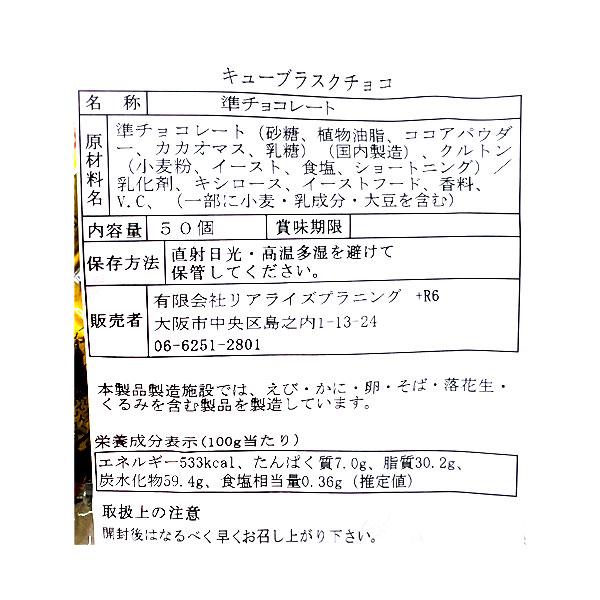 キューブラスクチョコ
名 称 準チョコレート
原材料名 準チョコレート（砂糖、植物油脂、ココアパウダ
ー、カカオマス、乳糖）（国内製造）、クルトン
（小麦粉、イースト、食塩、ショートニング）／
乳化剤、キシロース、イーストフード、香料、
V.C、（一部に小麦・乳成分・大豆を含む）
内容量 50個 賞味期限
保存方法 直射日光・高温多湿を避けて
保管してください。
販売者 有限会社リアライズプラニング +R6
大阪市中央区島之内1-13-24
06-6251-2801
本製品製造施設では、えび・かに・卵・そば・落花生・
くるみを含む製品を製造しています。
栄養成分表示(100g当たり)
エネルギー533kcal、たんぱく質7.0g、脂質30.2g、
炭水化物59.4g、食塩相当量0.36g（推定値）
取扱上の注意
開封後はなるべく早くお召し上がり下さい。